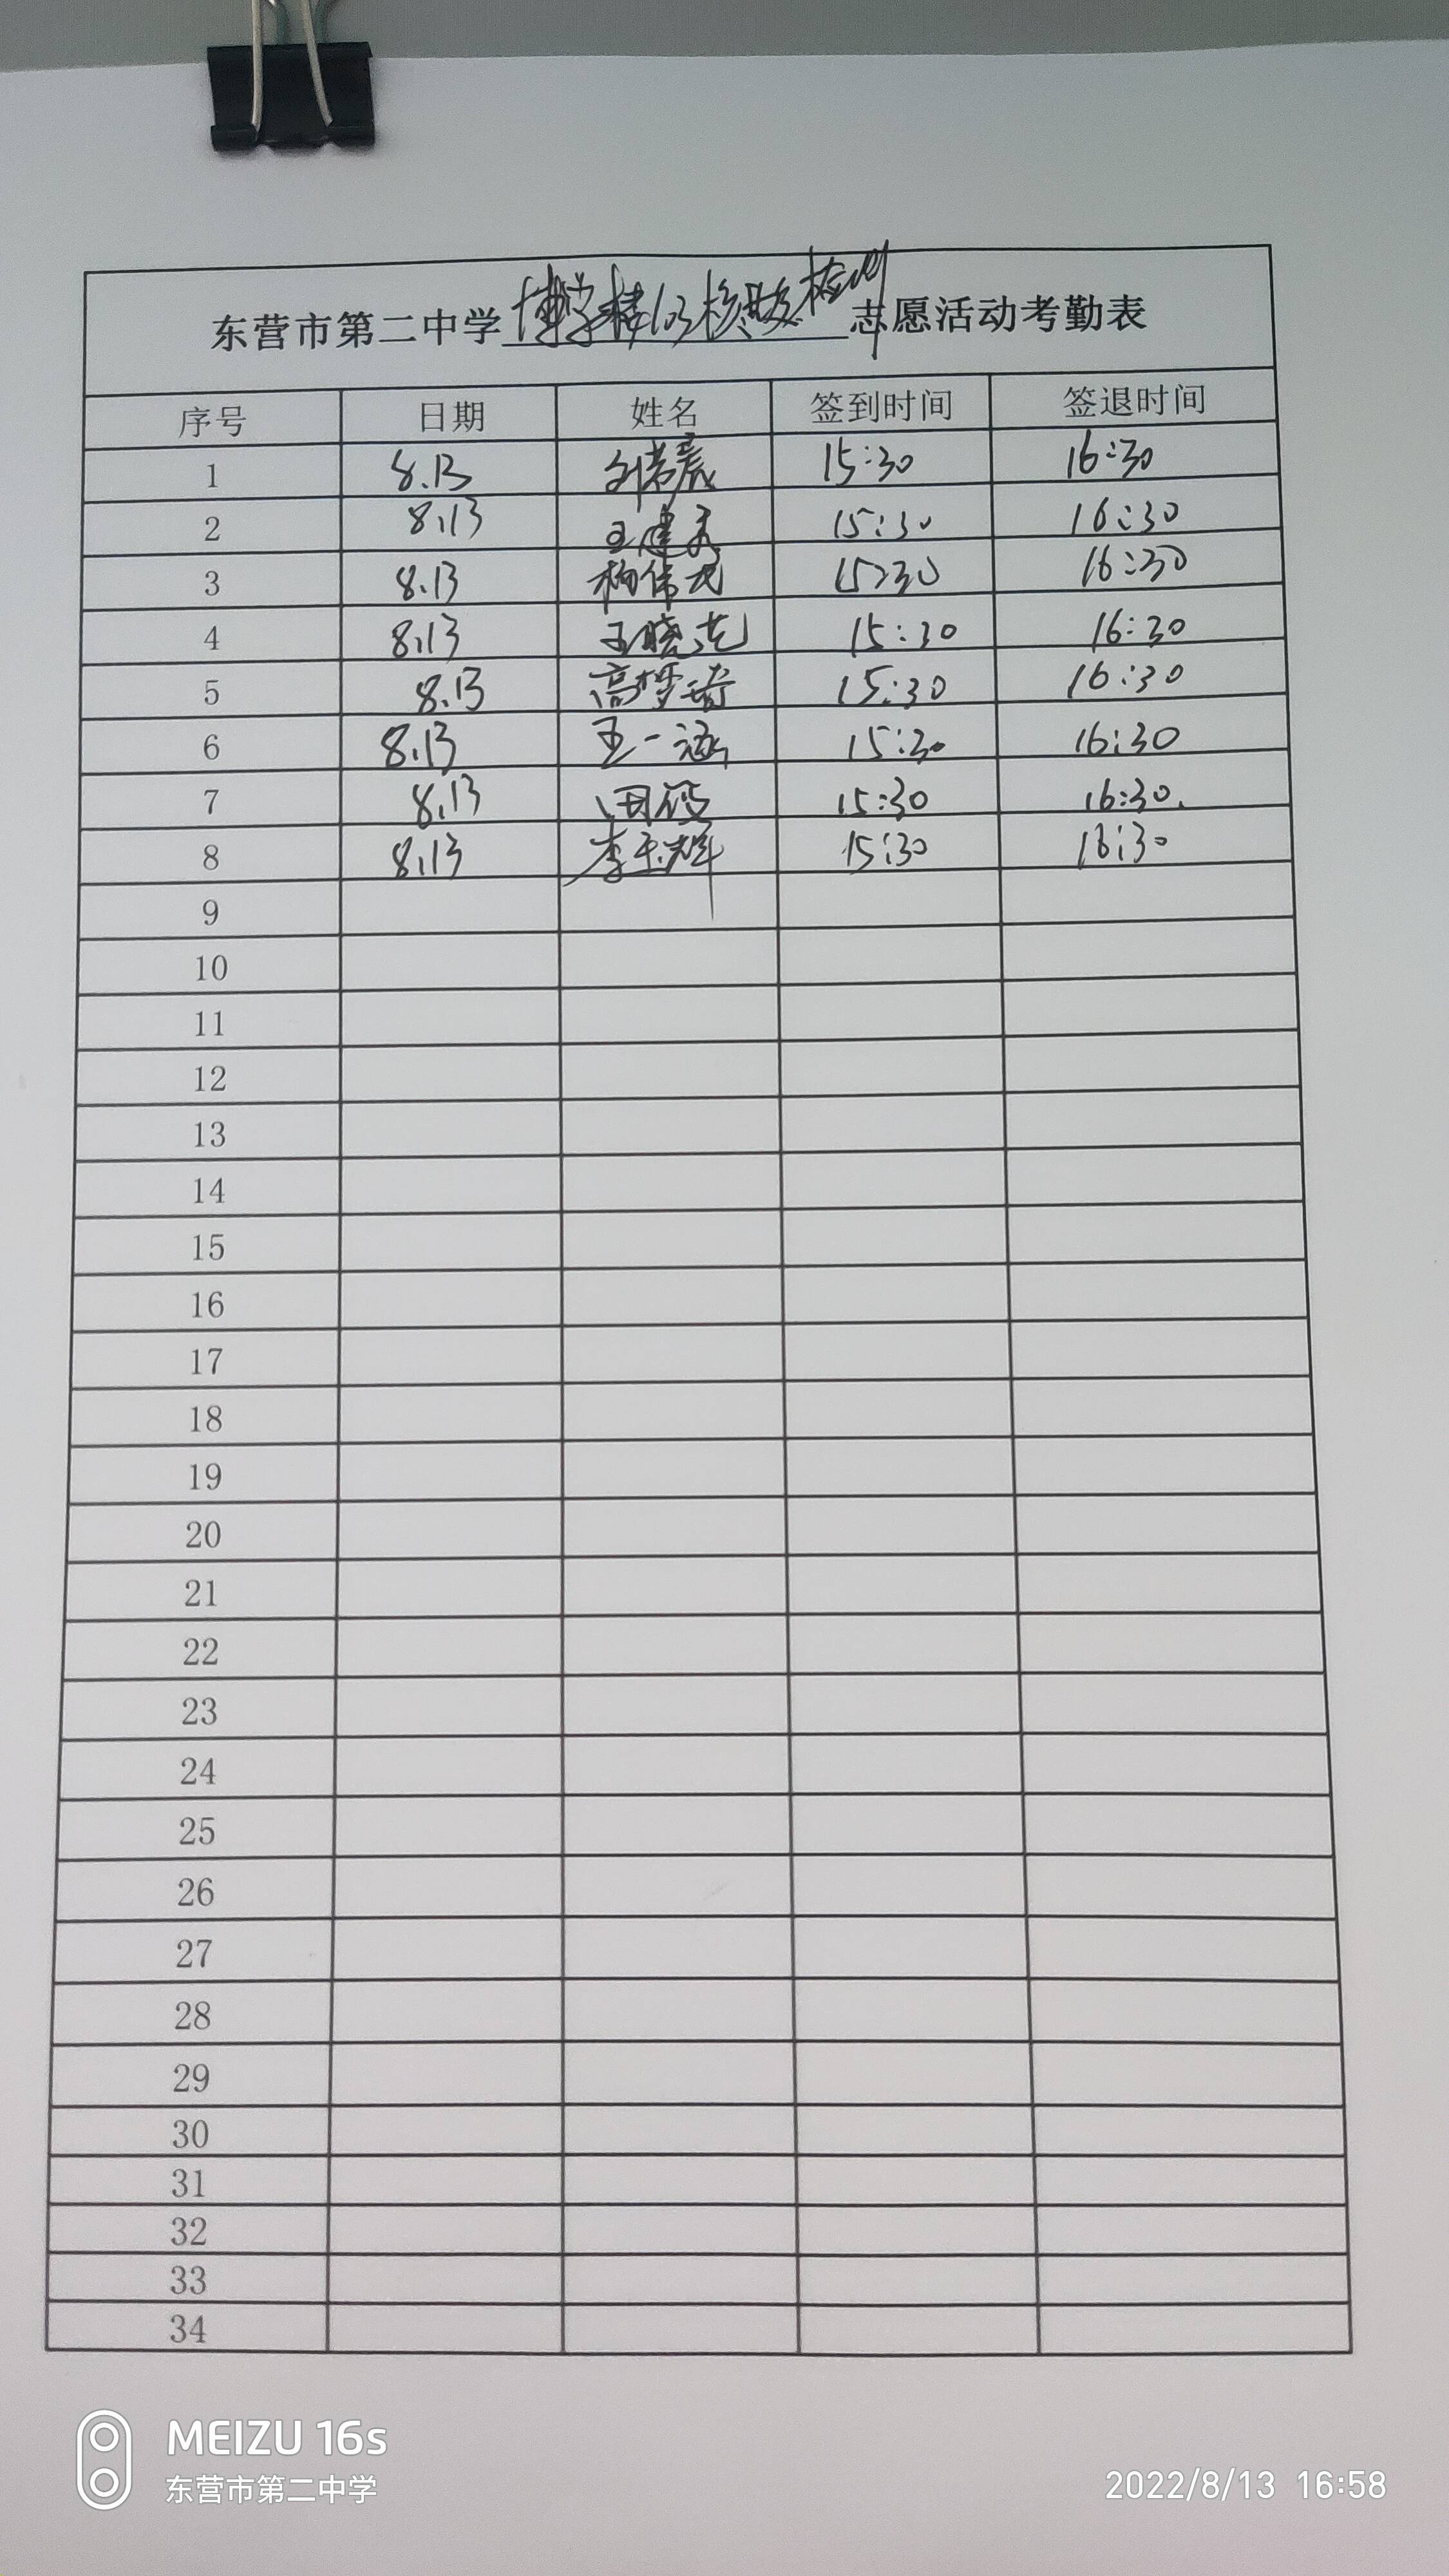 东营市第二中学博学楼103核酸检测志愿活动考勤表
序号 日期 姓名 签到时间 签退时间
1 8.13 15:30 16:30
2 8.13 王建秀 15:30 16:30
3 8.13 杨伟 15:30 16:30
4 8.13 王晓 15:30 16:30
5 8.13 高梦琦 15:30 16:30
6 8.13 王一涵 15:30 16:30
7 8.13 田 15:30 16:30.
8 8.13 李玉辉 15:30 16:30
9
10
11
12
13
14
15
16
17
18
19
20
21
22
23
24
25
26
27
28
29
30
31
32
33
34
MEIZU 16s
东营市第二中学
2022/8/13 16:58